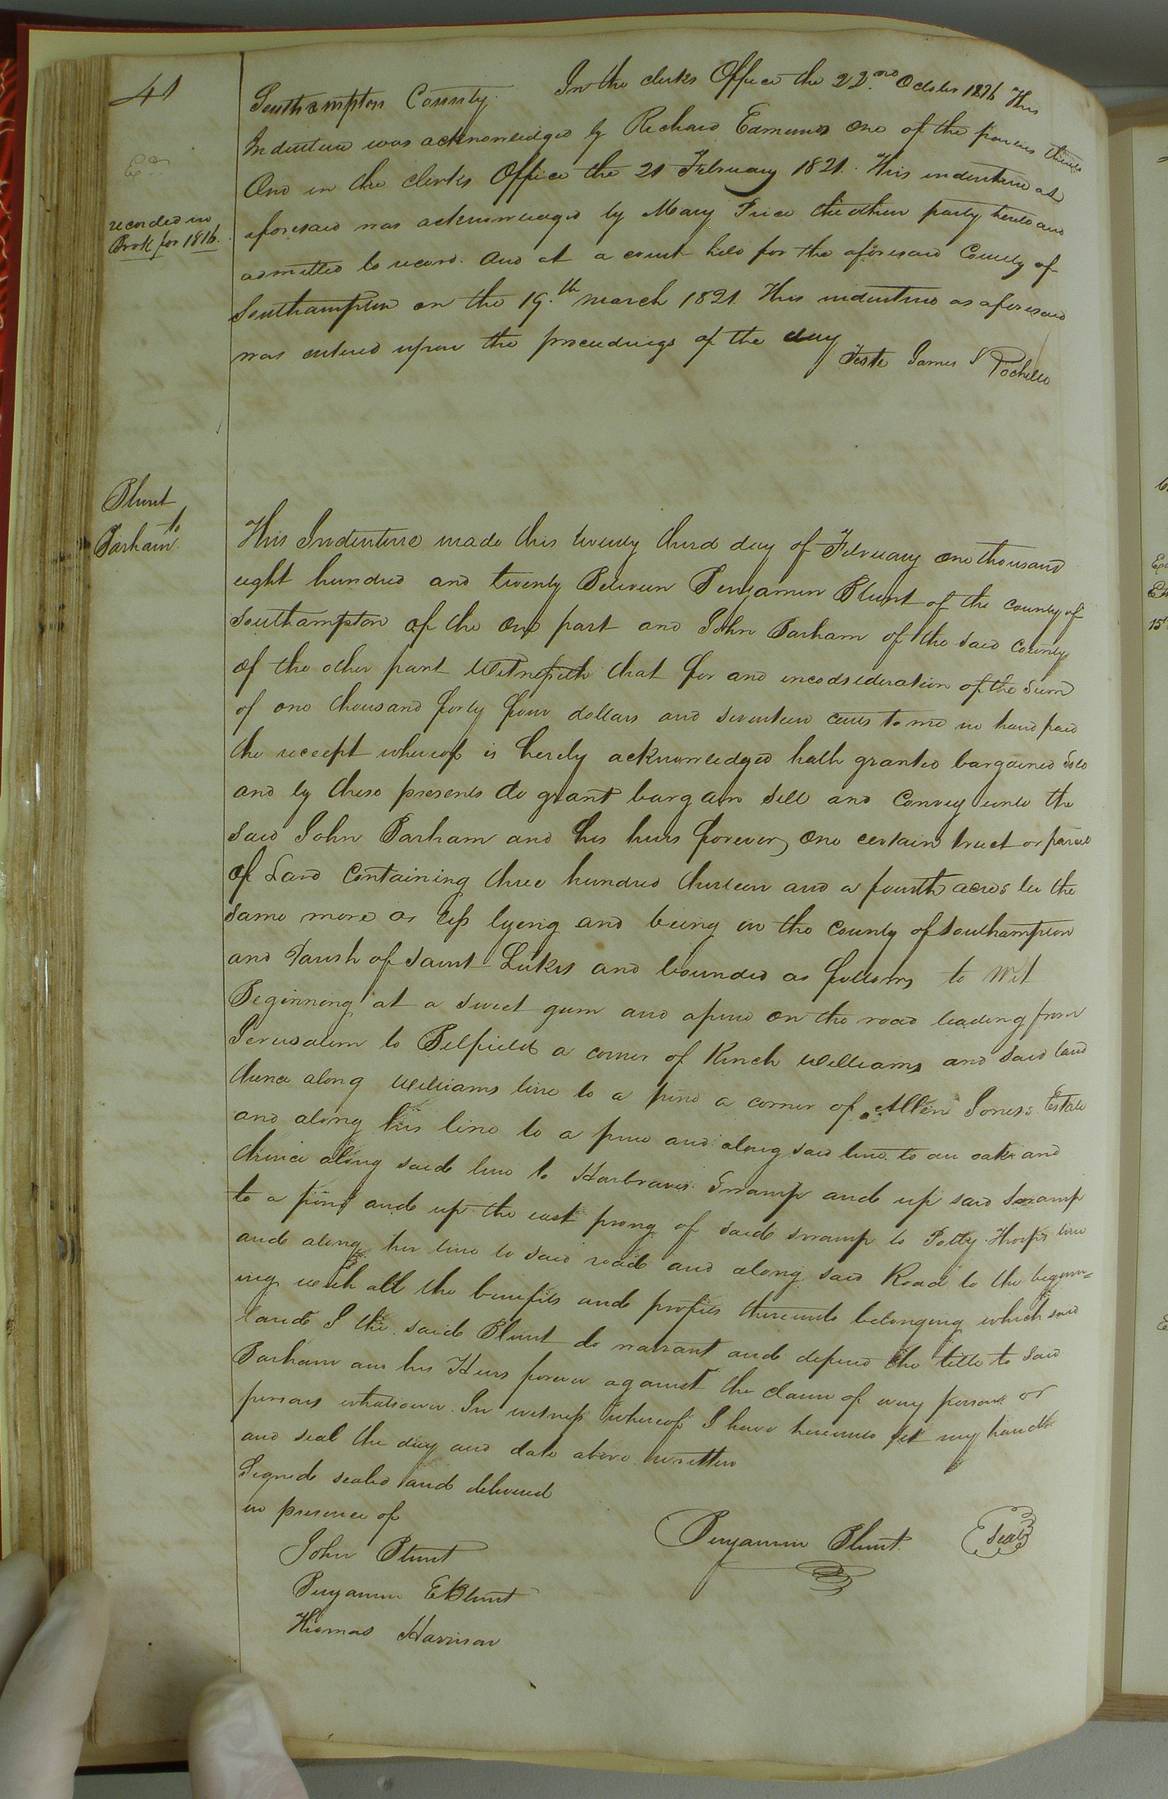 41
recorded in
Book for 1816.
Southampton County. In the clerks Office the 22nd October 1816 This
Indenture was acknowledged by Richard Edmunds one of the parties thereto
And in the clerks Office the 21 February 1821. This indenture as
aforesaid was acknowledged by Mary Price the other party hereto and
admitted to record. And at a court held for the aforesaid County of
Southampton on the 19th march 1821. This indenture as aforesaid
was entered upon the proceedings of the day
Teste James Rochelle
Blunt
to
Barham
This Indenture made this twenty third day of February one thousand
eight hundred and twenty Between Benjamin Blunt of the county of
Southampton of the one part and John Barham of the said County
of the other part Witnesseth that for and inconsideration of the Sum
of one thousand forty four dollars and seventeen cents to me in hand paid
the receept whereof is hereby acknowledged hath granted bargained Sold
and by these presents do grant bargain Sell and Convey unto the
said John Barham and his heirs forever, one certain tract or parcel
of Land Containing three hundred thirteen and a fourth acres be the
same more or less lyeing and being in the county of Southampton
and Parish of Saint Lukes and bounded as follows to Wit
Beginning at a sweet gum and a pine on the road leading from
Jerusalem to Belfield a corner of Kinch Williams and said land
thence along Williams line to a pine a corner of Allen Jones's Estate
and along his line to a pine and along said line to an oak and
thence along said line to Harbraves Swamp and up said Swamp
to a pine and up the east prong of said swamp to Patty Thorps line
and along her line to said road and along said Road to the beginn-
ing with all the benefits and profits thereunto belonging which said
land I the said Blunt do warrant and defend the title to said
Barham and his Heirs forever against the claim of any person or
persons whatsoever. In witness whereof I have hereunto set my hand
and seal the day and date above written
Signed sealed and delivered
in presence of
Benjamin Blunt. Seal
John Blunt
Benjamin E Blunt
Thomas Harrison